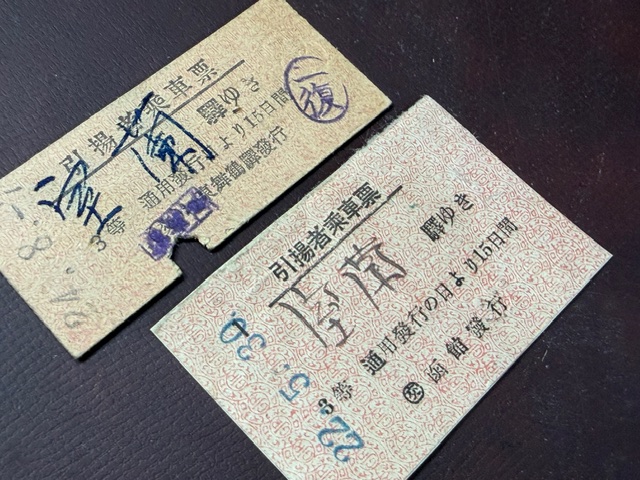 引揚者乗車票
室蘭 驛ゆき
通用發行の日より15日間
3等
東舞鶴驛發行
復
引揚者乗車票
室蘭 驛ゆき
通用發行の日より15日間
3等
㋛函館發行
22.5.30